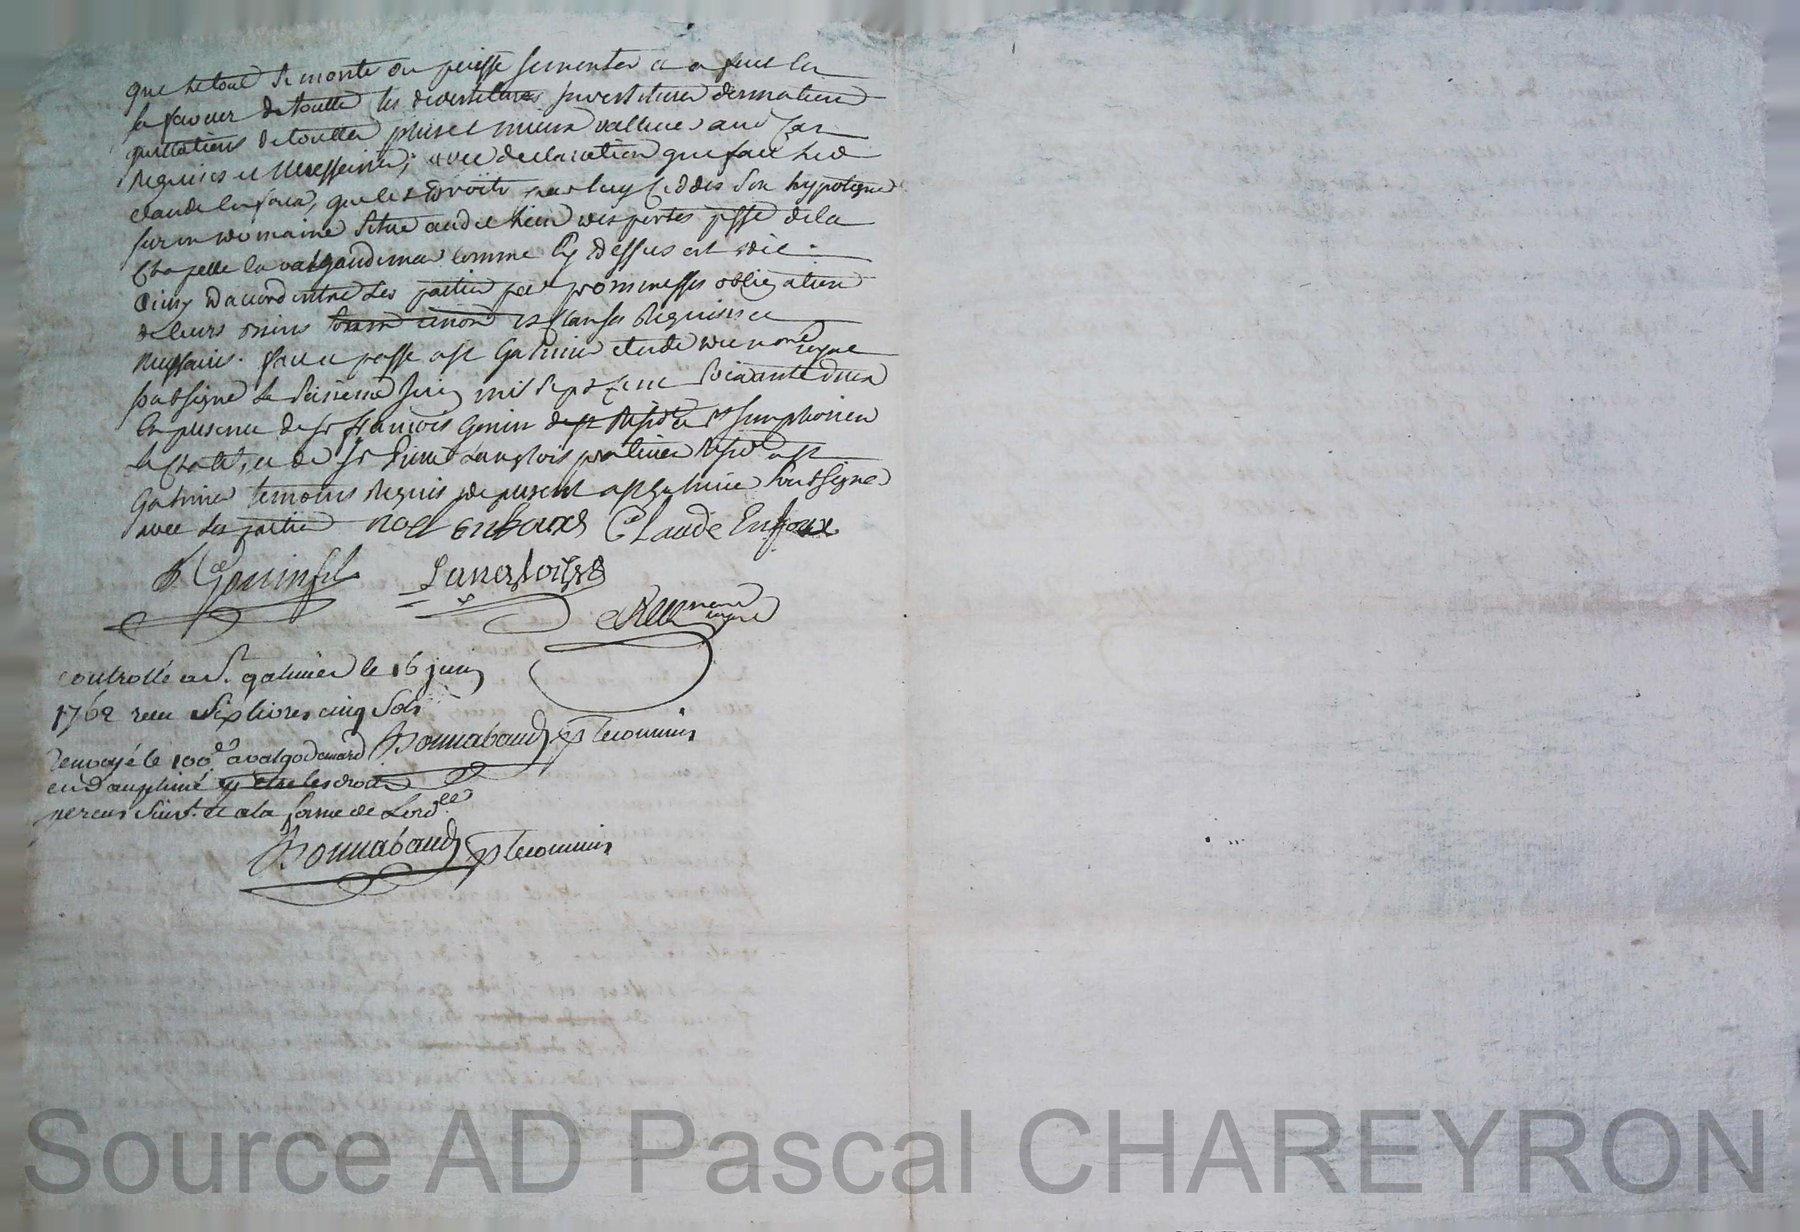 que le tout se monte ou puisse se monter et a fait en
sa faveur de touttes les devestitures investitures
quittations de touttes plus et mieux vallues aud cas
requises et necessaires; avec declaration que fait led
claude enfoux, que les droits par luy ceddés son hypotequé
sur un domaine situé audit lieu des portes psse de la
Chapelle en valgaudemar comme cy dessus est dit.
Ainsy d'accord entre les parties par promesses obligation
de leurs biens et clauses requises et
necessaires. fait et passé a St Galmier etude du no.re royal
soubsigné le seizieme juin mil sept cent soixante deux
En presence de sr françois Genin de St Simphorien
le chatel, et de sr Langlois praticien resid a St
Galmier temoins requis de present a St Galmier soubsignes
avec les parties noel enfoux Claude Enfoux
Genin fils Langlois
nore royal
controllé a St. galmier le 16 juin
1762 receu six livres cinq sols
Bonnabaud p le commis
renvoyé le 100e a valgodemard
en dauphiné y etre les droits
percus suivt. et a la forme de
Bonnabaud p le commis
Source AD Pascal CHAREYRON